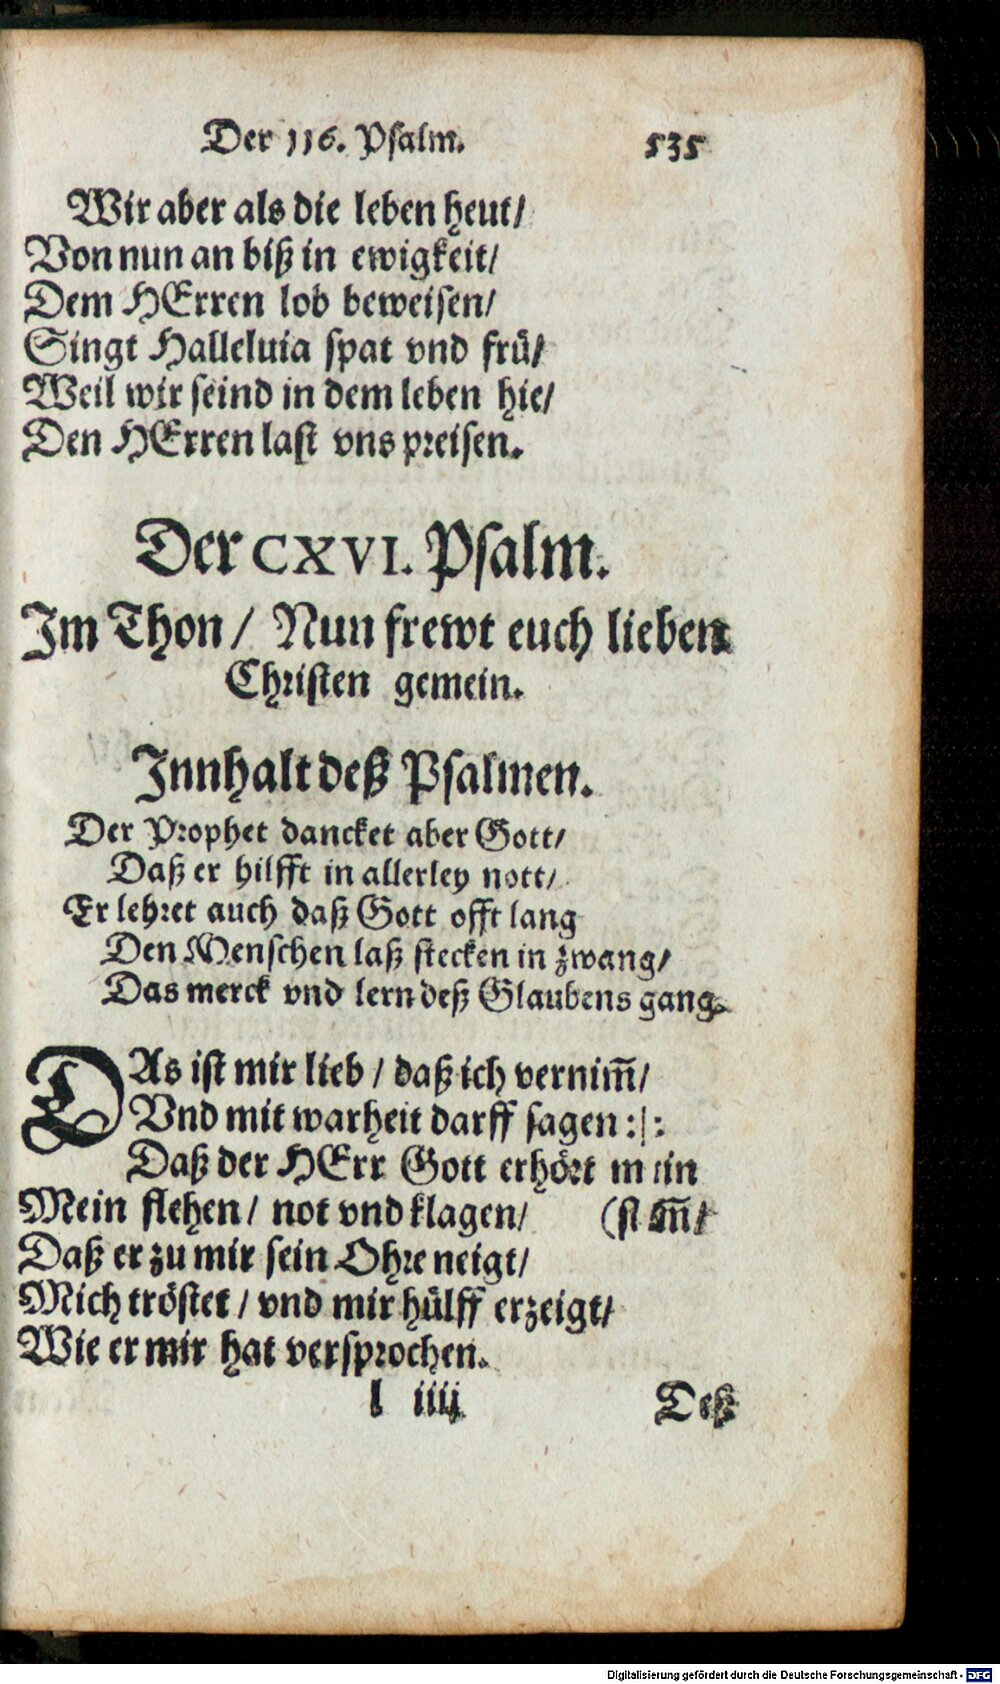 Der 116. Psalm. 535
Wir aber als die leben heut/
Von nun an biß in ewigkeit/
Dem HErren lob beweisen/
Singt Halleluia spat vnd frü/
Weil wir seind in dem leben hie/
Den HErren last vns preisen.
Der CXVI. Psalm.
Im Thon/ Nun frewt euch lieben
Christen gemein.
Innhalt deß Psalmen.
Der Prophet dancket aber Gott/
Daß er hilfft in allerley nott/
Er lehret auch daß Gott offt lang
Den Menschen laß stecken in zwang/
Das merck vnd lern deß Glaubens gang.
DAs ist mir lieb / daß ich vernim̃/
Vnd mit warheit darff sagen :|:
Daß der HErr Gott erhört mein
Mein flehen/ not vnd klagen/ (stim̃/
Daß er zu mir sein Ohre neigt/
Mich tröstet / vnd mir hülff erzeigt/
Wie er mir hat versprochen.
l iiij Deß
Digitalisierung gefördert durch die Deutsche Forschungsgemeinschaft - DFG